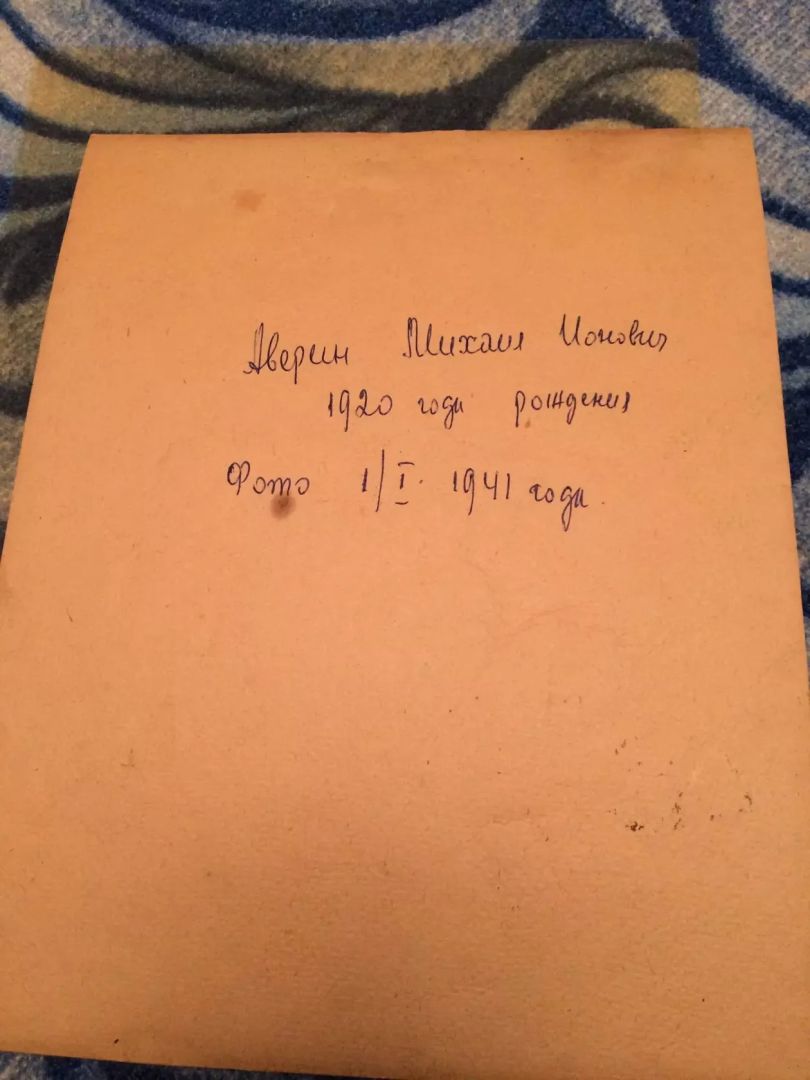 Аверин Михаил Ионович
1920 года рождения
Фото 1/I. 1941 года.